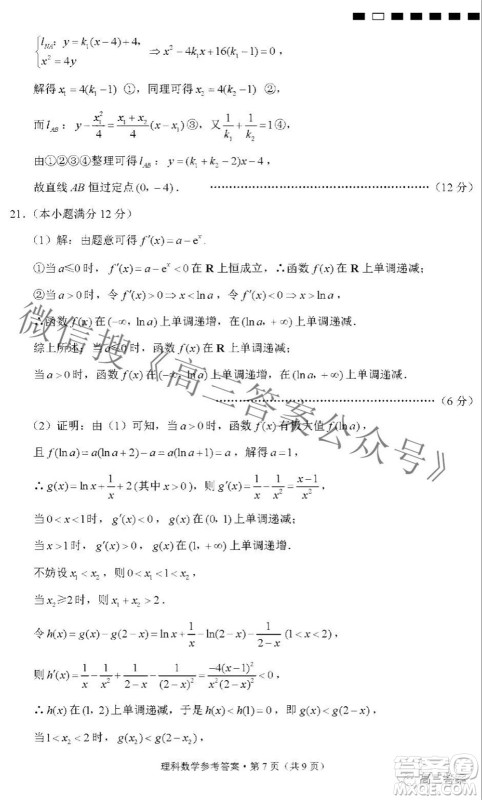 {l_{NA}: y=k₁(x-4)+4, x²=4y ⇒ x²-4k₁x+16(k₁-1)=0,
解得x₁=4(k₁-1) ①, 同理可得x₂=4(k₂-1) ②,
而l_{AB}: y-x₁²/4=(x₁+x₂)/4(x-x₁)③, 又1/k₁+1/k₂=1④,
由①②③④整理可得l_{AB}: y=(k₁+k₂-2)x-4,
故直线 AB 恒过定点(0, -4). ……………………(12 分)
21. (本小题满分 12 分)
(1) 解: 由题意可得 f′(x)=a-eˣ.
①当a≤0时, f′(x)=a-eˣ<0在 R 上恒成立, ∴函数 f(x)在 R 上单调递减;
②当a>0时, 令 f′(x)>0⇒x<ln a, 令 f′(x)<0⇒x>ln a,
∴函数 f(x)在(-∞, ln a)上单调递增, 在(ln a, +∞)上单调递减.
综上所述: 当a≤0时, 函数 f(x)在 R 上单调递减;
当a>0时, 函数 f(x)在(-∞, ln a)上单调递增, 在(ln a, +∞)上单调递减.
……………………(6 分)
(2) 证明: 由(1)可知, 当a>0时, 函数 f(x)有极大值 f(ln a),
且 f(ln a)=a(ln a+2)-a=a(ln a+1)=a, 解得a=1,
∴g(x)=ln x+1/x+2(其中x>0), 则g′(x)=1/x-1/x²=(x-1)/x²,
当0<x<1时, g′(x)<0, g(x)在(0, 1)上单调递减;
当x>1时, g′(x)>0, g(x)在(1, +∞)上单调递增.
不妨设x₁<x₂, 则0<x₁<1<x₂,
当x₂≥2时, x₁+x₂>2.
令h(x)=g(x)-g(2-x)=ln x+1/x-ln(2-x)-1/(2-x)(1<x<2),
则h′(x)=1/x-1/x²+1/(2-x)-1/(2-x)²=-4(x-1)²/(x²(2-x)²)<0,
∴h(x)在(1, 2)上单调递减, 于是h(x)<h(1)=0, 即g(x)<g(2-x),
当1<x₂<2 时, g(x₂)<g(2-x₂),
理科数学参考答案·第 7 页(共 9 页)
微信搜《高三答案公众号》